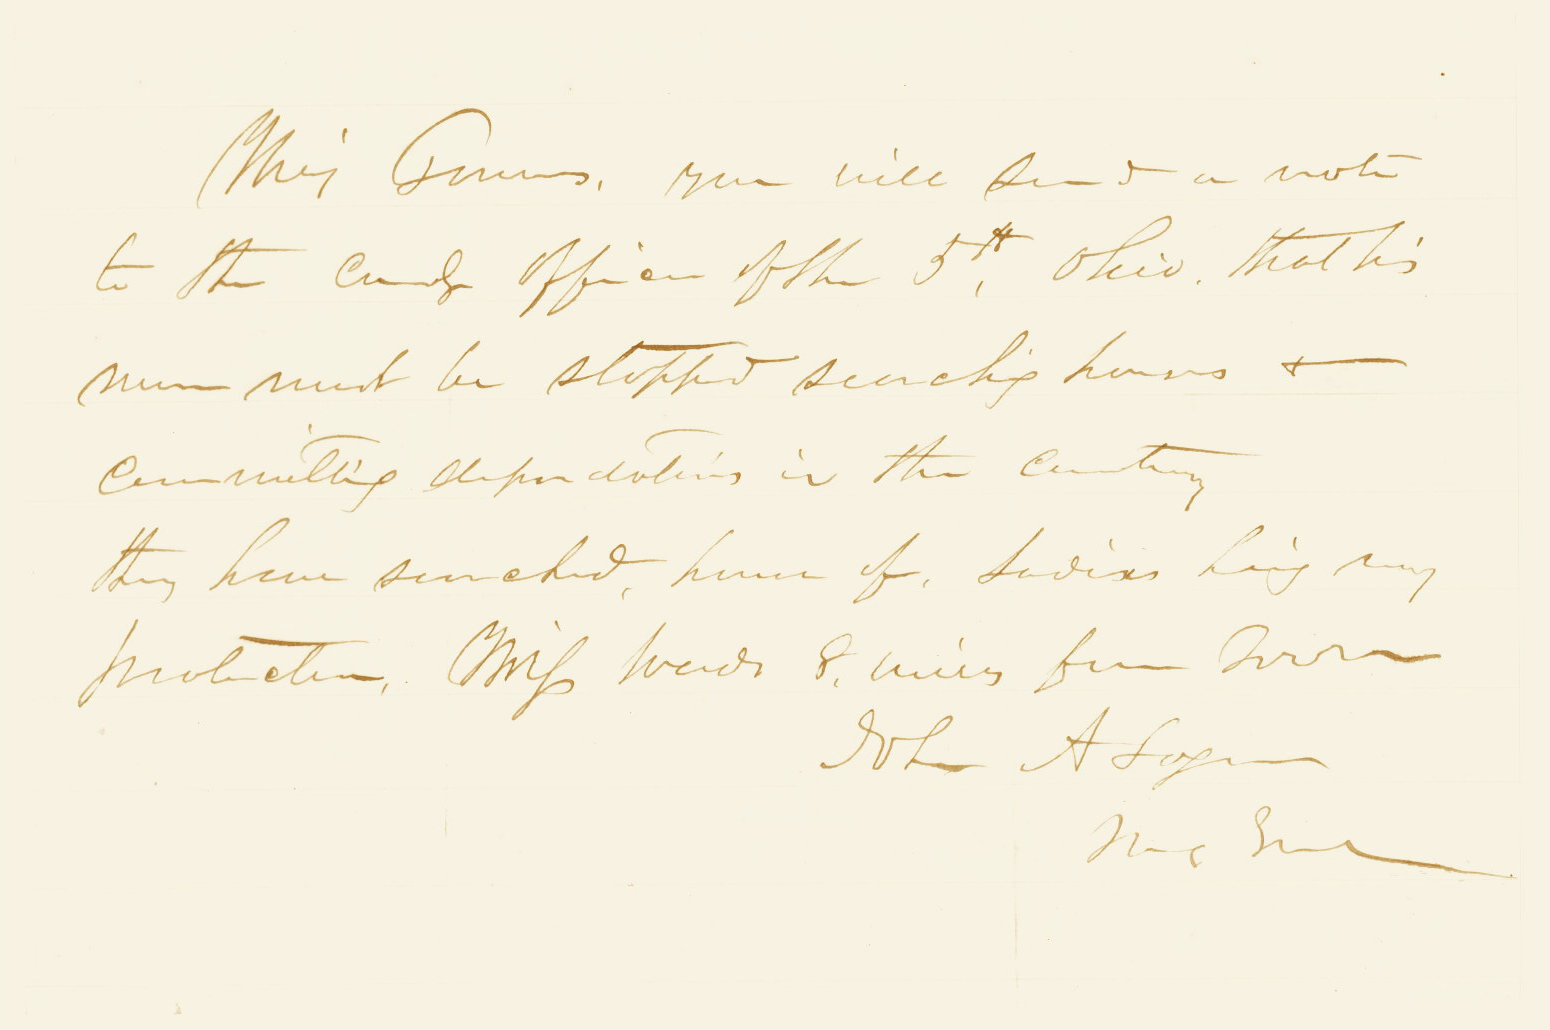 Maj Townes, you will send a note
to the Comdg Officer of the 5th, Ohio, that his
men must be stopped searching houses &
committing depredations in the country
they have searched, house of, Ladies having my
protection, Miss Wards 8, miles from Town
John A Logan
Maj Genl